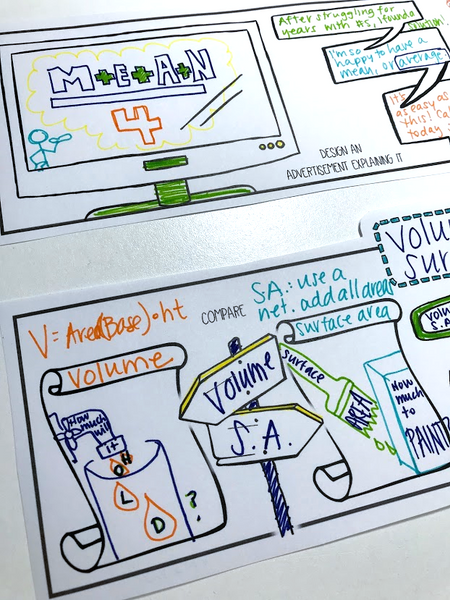 After struggling for
years with #s, I found a
solution!
I'm so
happy to have a
mean, or average
It's
as easy as
this! Cal
today
M+E+A+N
4
DESIGN AN
ADVERTISEMENT EXPLAINING IT
Volu
sur
V = Area(Base) • ht
COMPARE
SA.: use a
net. add all areas
volume
surface area
Volume
S.A.
How
much
will
it
H
O
L
D
?
surface
AREA
How
much
to
PAINT
volu
S.A.